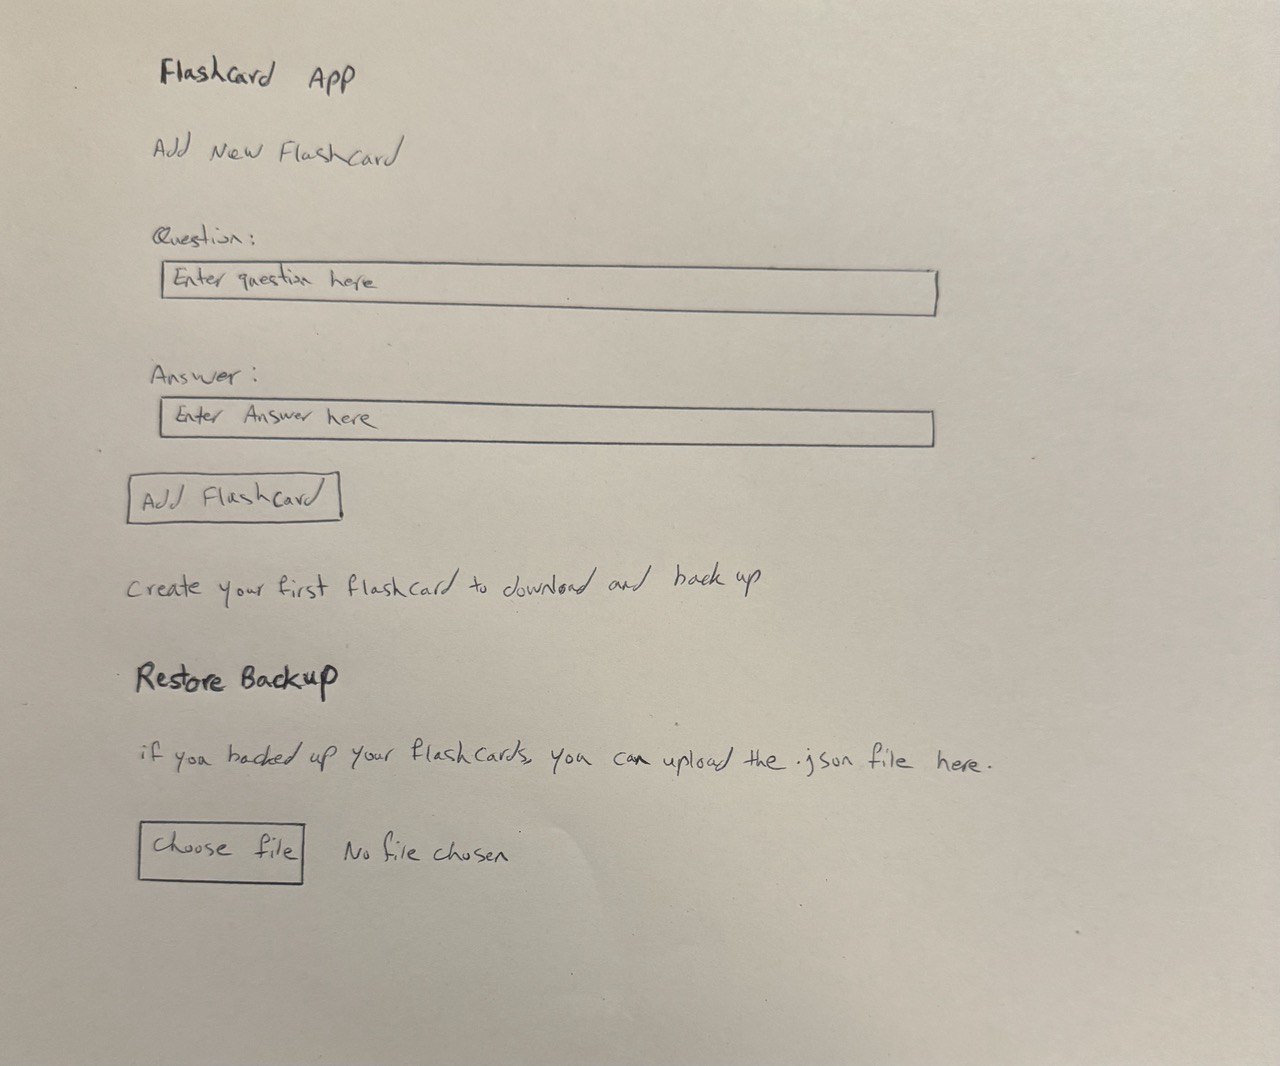 Flashcard App
Add New Flashcard
Question:
Enter question here
Answer:
Enter Answer here
Add Flashcard
Create your first flashcard to download and back up
Restore Backup
if you backed up your flashcards, you can upload the .json file here.
Choose file No file chosen